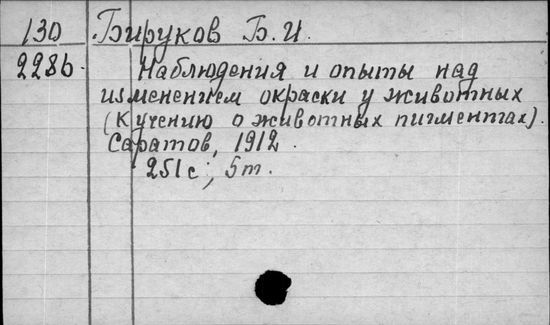 130 Бируков Б. И.
228б. Наблюдения и опыты над
изменением окраски у животных
(К учению о животных пигментах).
Саратов, 1912.
251 с; 5 т.